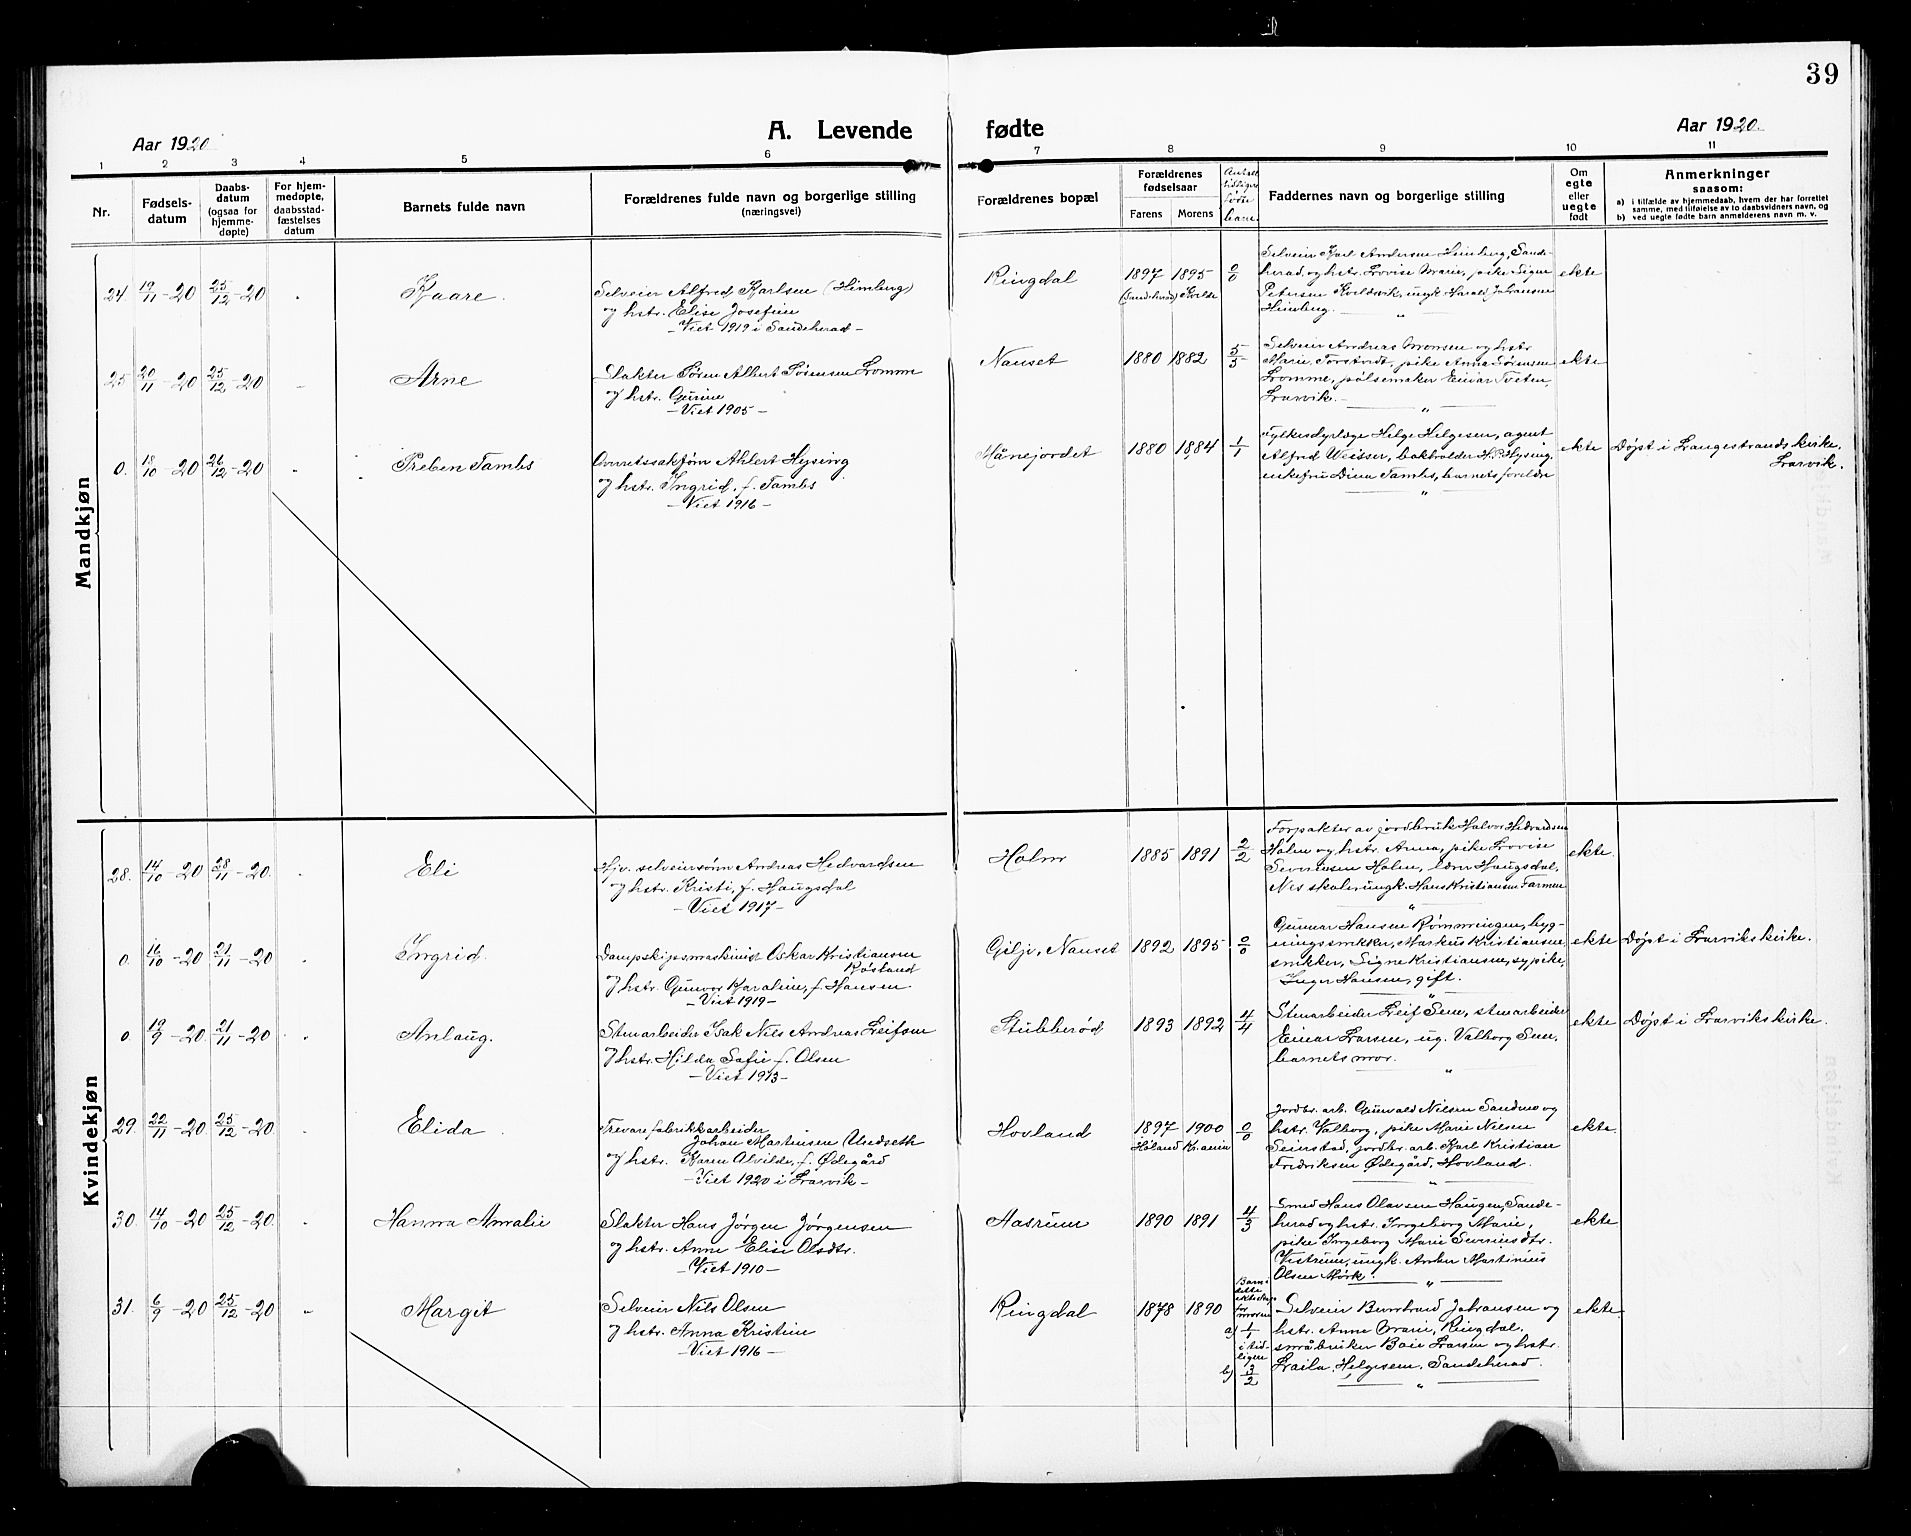 39
Aar 1920
A. Levende fødte
Aar 1920.
1 2 3 4 5 6 7 8 9 10 11
Nr.
Fødsels-
datum
Daabs-
datum
(ogsaa for
hjemme-
døpte)
For hjem-
medøpte,
daabsstad-
fæstelses
datum
Barnets fulde navn
Forældrenes fulde navn og borgerlige stilling
(næringsvei)
Forældrenes bopæl
Forældrenes
fødselsaar
Farens Morens
Antal
tidligere
fødte
barn
Faddernes navn og borgerlige stilling
Om
egte
eller
uegte
født
Anmerkninger
saasom:
a) i tilfælde av hjemmedaab, hvem der har forrettet
samme, med tilføielse av to daabsvidners navn, og
b) ved uegte fødte barn anmelderens navn m. v.
Mandkjøn
24. 19/11-20 25/12-20 Kaare.
Selveier Alfred Karlsen (Himberg)
og hstr. Elise Josefine
- Viet 1919 i Sandeherad -
Ringdal 1897 1895 0/0
(Sandeherad) Kvelde
Selveier Karl Andersen Himberg, Sande-
herad, og hstr. Lovise Marie, pike Signe
Petersen Kveldsvik, ungk. Harald Johansen
Himberg.
ekte
25 20/11-20 25/12-20 Arne
Slakter Søren Albert Sørensen Lomme
og hstr. Gurine
- Viet 1905 -
Nanset 1880 1882 5/5
Selveier Andreas Monsen og hstr.
Marie, Torstvedt, pike Anna Sørensen
Lomme, pølsemaker Einar Tveten,
Larvik.
ekte
0. 18/10-20 26/12-20 Preben Tambs
Overretssakføm Ahlert Hysing
og hstr. Ingrid, f. Tambs
- Viet 1916 -
Månejordet 1880 1884 1/1
Fylkesdyrlæge Helge Helgesen, agent
Alfred Weisser, bokholder H.P. Hysing,
enkefru Dina Tambs, barnets foreldre
ekte
Døpt i Langestrands kirke,
Larvik.
Kvindekjøn
28. 14/10-20 28/11-20. Eli
Hjv. selveiersønn Andreas Hedvardsen
og hstr. Kristi, f. Haugsdal
- Viet 1917 -
Holm 1885 1891 2/2
Forpakter av jordbruk Halvor Hedvardsen
Holm og hstr. Anna, pike Lovise
Severinsen Holm, lærer Haugsdal,
Nes skole, ungk. Hans Kristiansen Farmen
ekte.
0. 16/10-20 21/11-20 Ingrid.
Dampskipsmaskinist Oskar Kristiansen
Røsland
og hstr. Gunvor Karoline, f. Hansen.
- Viet 1919 -
Gilje, Nanset 1892 1895 0/0
Gunnar Hansen Rømmingen, byg-
ningssnikker, Markus Kristiansen,
snikker, Signe Kristiansen, sypike,
Inger Hansen, gift.
ekte Døpt i Larviks kirke.
0. 19/9-20. 21/11-20 Anlaug.
Stenarbeider Isak Nils Andreas Leifsen
og hstr. Hilda Sofie f. Olsen
- Viet 1913 -
Stubberød 1893 1892 4/4
Stenarbeider Leif Sem, stenarbeider
Einar Larsen, ug. Valborg Sem,
barnets mor.
ekte Døpt i Larviks kirke.
29. 22/11-20 25/12-20 Elida.
Trevarefabrikkarbeider
Johan Martinsen Undseth
og hstr. Karen Alvilde, f. Ødegård
- Viet 1920 i Larvik -
Hovland 1897 1900 0/0
Høland Kr.ania
Jordbr. arb. Gunvald Nilsen Sandmo og
hstr. Valborg, pike Marie Nilsen
Seierstad, jordbr. arb. Karl Kristian
Fridriksen Ødegård, Hovland.
ekte.
30. 14/10-20 25/12-20. Hanna Amalie
Slakter Hans Jørgen Jørgensen
og hstr. Anne Elise Olsdtr.
- Viet 1910 -
Aasrum 1890 1891 4/3
Smed Hans Olavsen Haugen, Sande-
herad og hstr. Ingeborg Marie,
pike Ingeborg Marie Severinsdtr.
Vestrum, ungk. Anton Martinius
Olsen Mørk.
ekte
31. 6/9-20 25/12-20 Margit
Selveier Nils Olsen
og hstr. Anna Kristine
- Viet 1916 -
Ringdal 1878 1890
Barn i
dette
ekteskap
for
moren
a) 1/1
i tid-
ligere
b) 3/2
Selveier Bernhard Johansen og
hstr. Anne Marie, Ringdal,
småbruker Boie Larsen og hstr.
Laila, Helgesem, Sandeherad.
ekte.